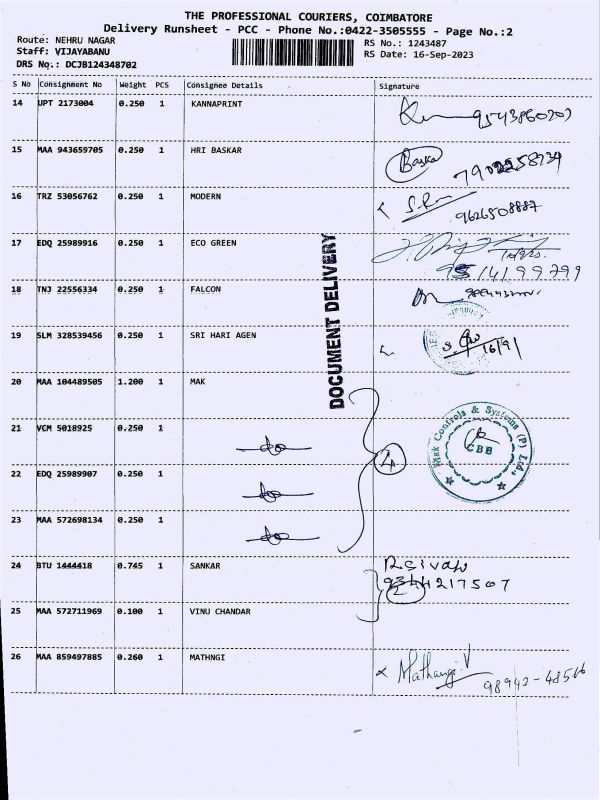 THE PROFESSIONAL COURIERS, COIMBATORE
Delivery Runsheet - PCC - Phone No.:0422-3505555 - Page No.:2
Route: NEHRU NAGAR RS No.: 1243487
Staff: VIJAYABANU RS Date: 16-Sep-2023
DRS No.: DCJB124348702
S No Consignment No Weight PCS Consignee Details Signature
14 UPT 2173004 0.250 1 KANNAPRINT
15 MAA 943659705 0.250 1 HRI BASKAR Baska
16 TRZ 53056762 0.250 1 MODERN
9626508887
17 EDQ 25989916 0.250 1 ECO GREEN
9514199799
18 TNJ 22556334 0.250 1 FALCON
19 SLM 328539456 0.250 1 SRI HARI AGEN 16/9/
DOCUMENT DELIVERY
20 MAA 104489505 1.200 1 MAK
21 VCM 5018925 0.250 1
Mak Controls & Systems (P) Ltd.,
CBE
4
22 EDQ 25989907 0.250 1
23 MAA 572698134 0.250 1
24 BTU 1444418 0.745 1 SANKAR
2
25 MAA 572711969 0.100 1 VINU CHANDAR
26 MAA 859497885 0.260 1 MATHNGI Mathangi V